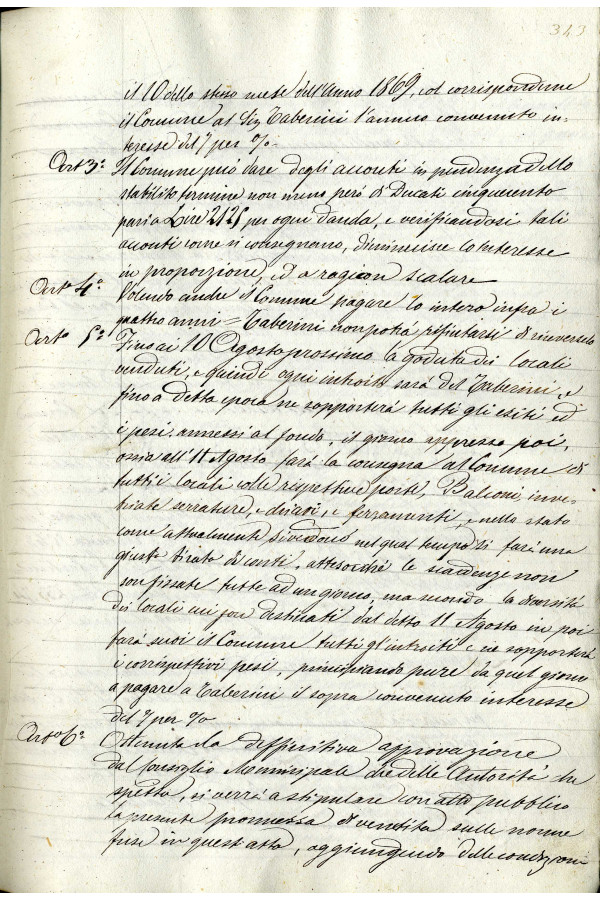 343
il 10 dello stesso mese dell'Anno 1869, col corrispondere
il Comune al Sig Taberini l'annuo convenuto in-
teresse del 7 per %.
Art. 3.° Il Comune può dare degli acconti in pendenza dello
stabilito termine non meno però di Ducati cinquecento
pari a Lire 2125 per ogni danda, e verificandosi tali
acconti come si consegnano, diminuisce lo Interesse
in proporzione, ed a ragion scalare
Art.° 4.° Volendo anche il Comune pagare lo intero infra i
quattro anni = Taberini non potrà rifiutarsi di riceverlo
Art.° 5.° Fino ai 10 Agosto prossimo la goduta dei locali
venduti, e quindi ogni introito sarà del Taberini, e
fino a detta epoca ne sopporterà tutti gli esiti ed
i pesi annessi al fondo, il giorno appresso poi,
ossia all'11 Agosto farà la consegna al Comune di
tutti i locali colle respettive porte, Balconi, inve-
triate serrature, e chiavi, e ferramenti, e nello stato
come attualmente si vedono nel qual tempo si farà una
giusta tirata di conti, attesochè le scadenze non
son fissate tutte ad un giorno, ma secondo la diversità
dei locali cui sono destinati dal detto 11 Agosto in poi
farà suoi il Comune tutti gl'introiti e ne sopporterà
i corrispettivi pesi, principiando pure da quel giorno
a pagare a Taberini il sopra convenuto interesse
del 7 per %
Art.° 6.° Ottenuta la deffinitiva approvazione
dal Consiglio Municipale che delle Autorità
spetta, si verrà a stipulare con atto pubblico
la presente promessa di vendita sulle norme
fuse in quest'atto, aggiungendo delle condizioni